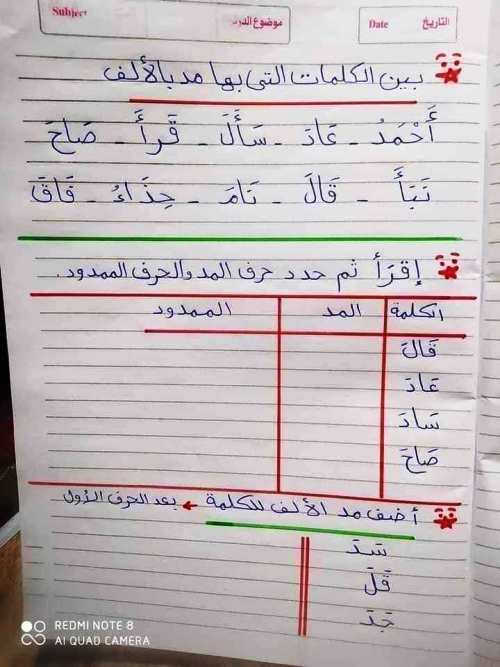 Subject موضوع الدرس Date التاريخ
بين الكلمات التى بها مد بالألف
أَحْمَدُ - عَادَ - سَأَلَ - قَرأَ - صَاحَ
نَبَأَ - قَالَ - نَامَ - حِذَاءُ - فَاقَ
إقرَأ ثم حدد حرف المد والحرف الممدود.
الكلمة المد الممدود
قَالَ
عَادَ
سَادَ
صَاحَ
أضف مد الألف للكلمة ← بعد الحرف الأول
سَدَ
قَلَ
جَدَ
REDMI NOTE 8
AI QUAD CAMERA